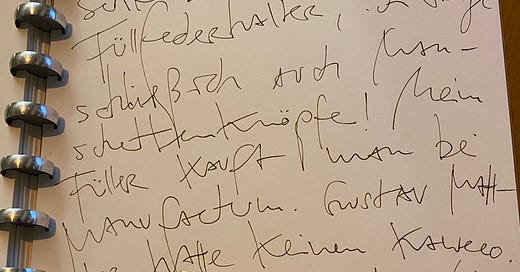 Füllfederhalter, ich trage
schließlich auch Man-
schettenknöpfe! Mein
Füller kauft man bei
Manufactum. Gustav Matt-
hatte keinen Kaweco.